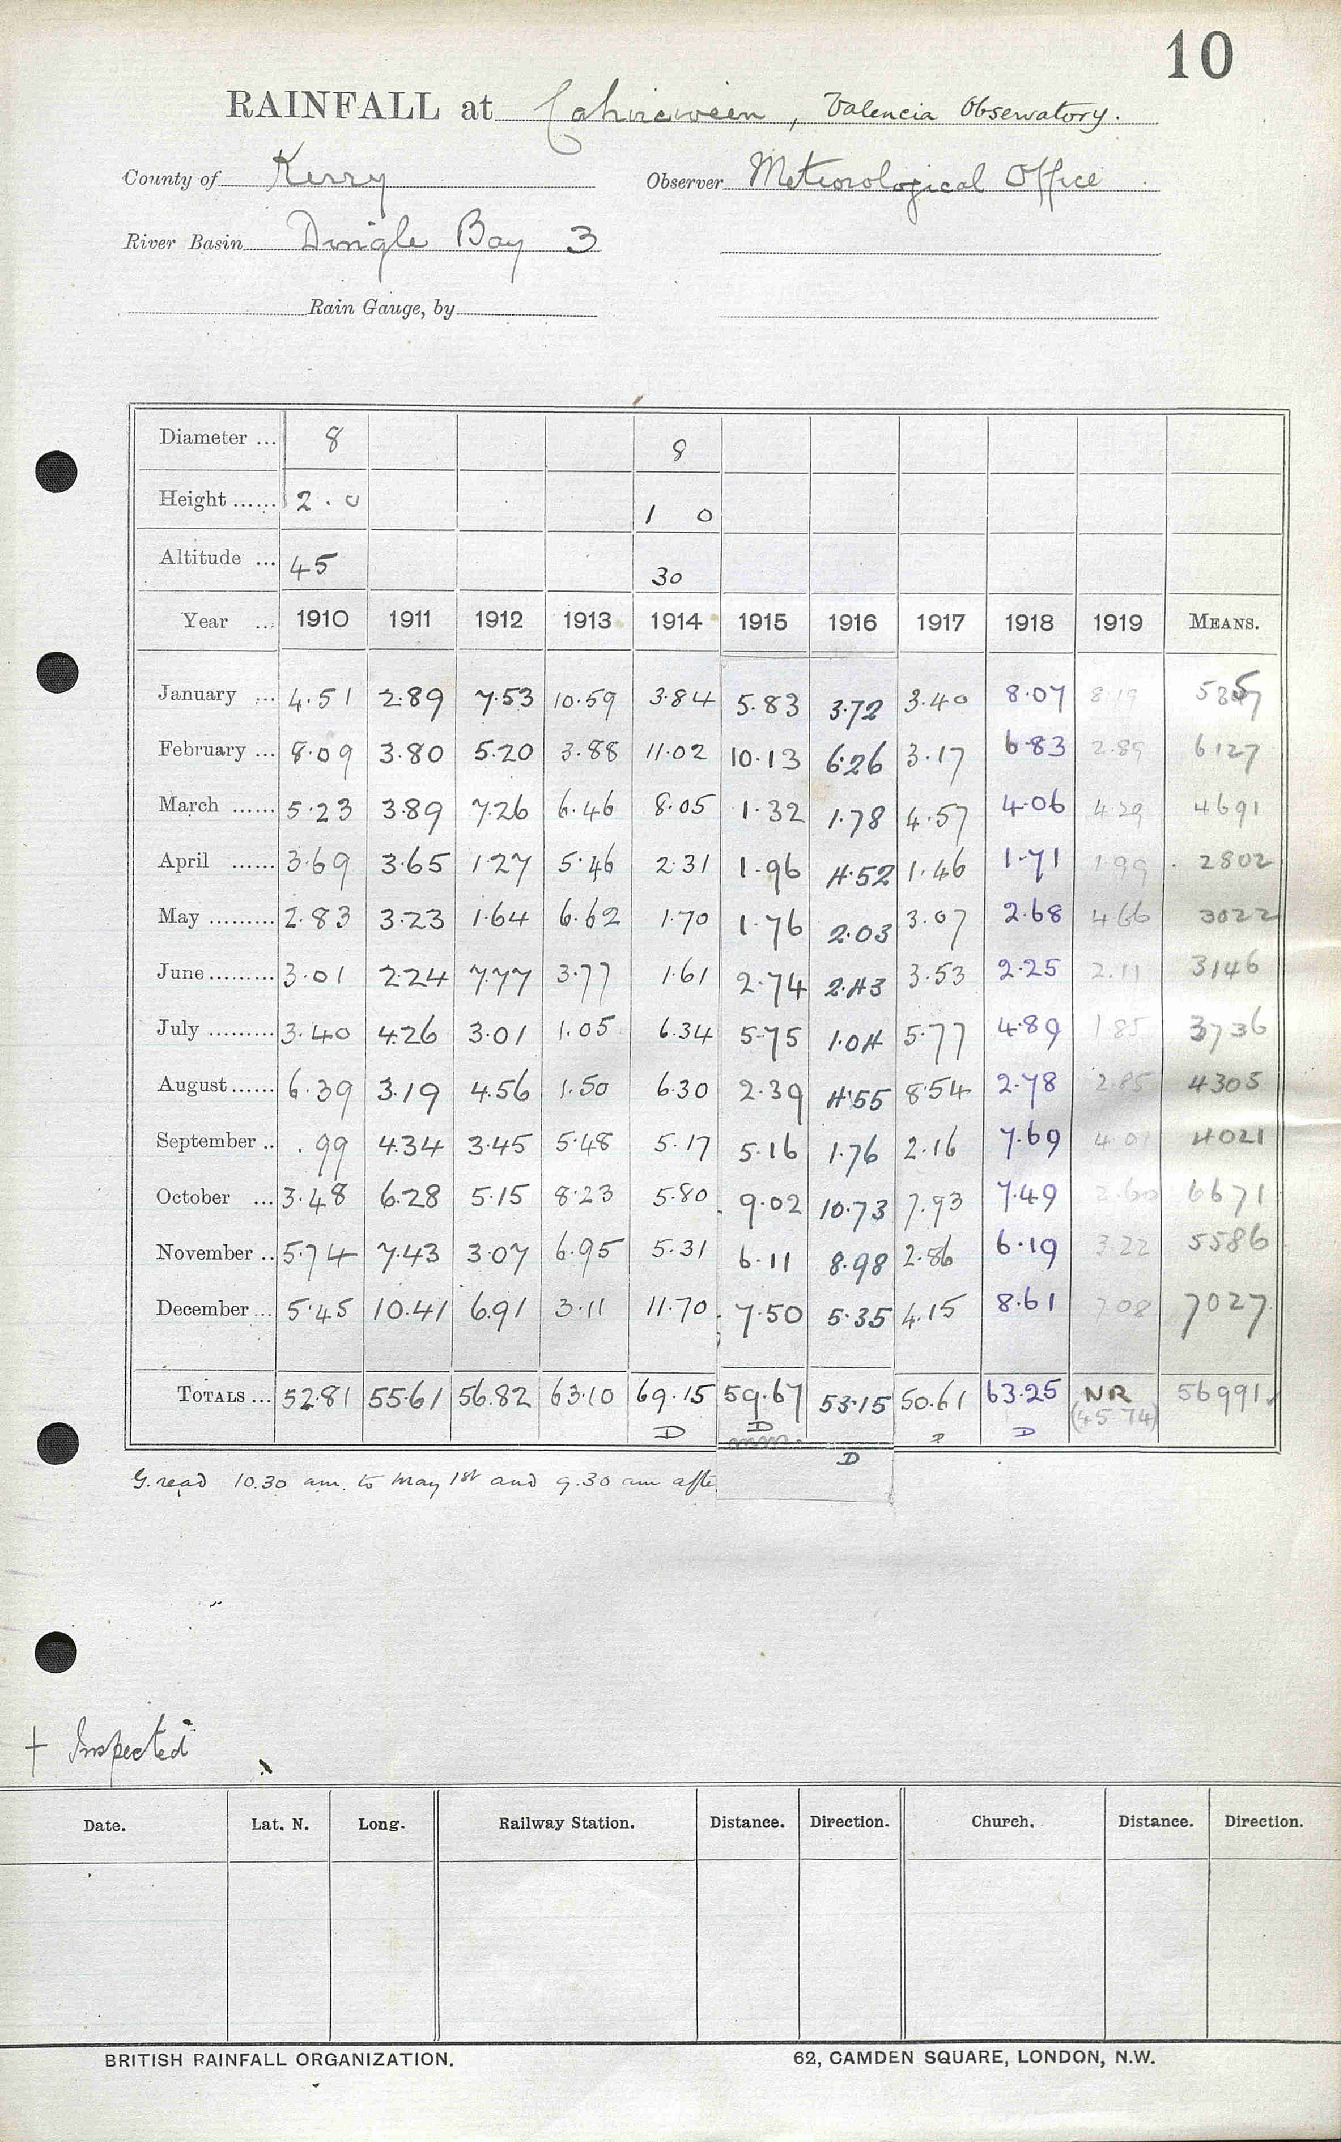 10
RAINFALL at Cahirciveen, Valencia Observatory.
County of Kerry Observer Meteorological Office
River Basin Dingle Bay 3
Rain Gauge, by
Diameter ... 8 8
Height ...... 2 . 0 1 0
Altitude ... 45 30
Year ... 1910 1911 1912 1913 1914 1915 1916 1917 1918 1919 MEANS.
January ... 4.51 2.89 7.53 10.59 3.84 5.83 3.72 3.40 8.07 8.19
February ... 8.09 3.80 5.20 3.88 11.02 10.13 6.26 3.17 6.83 2.89 6127
March ...... 5.23 3.89 7.26 6.46 8.05 1.32 1.78 4.57 4.06 4.29 4691
April ...... 3.69 3.65 1.27 5.46 2.31 1.96 4.52 1.46 1.71 1.99 2802
May ......... 2.83 3.23 1.64 6.62 1.70 1.76 2.03 3.07 2.68 4.66 3022
June ......... 3.01 2.24 7.77 3.77 1.61 2.74 2.43 3.53 2.25 2.11 3146
July ......... 3.40 4.26 3.01 1.05 6.34 5.75 1.04 5.77 4.89 1.85 3736
August ...... 6.39 3.19 4.56 1.50 6.30 2.39 4.55 8.54 2.78 2.85 4305
September .. .99 4.34 3.45 5.48 5.17 5.16 1.76 2.16 7.69 4.01 4021
October ... 3.48 6.28 5.15 8.23 5.80 9.02 10.73 7.93 7.49 6671
November .. 5.74 7.43 3.07 6.95 5.31 6.11 8.98 2.86 6.19 3.22 5586
December ... 5.45 10.41 6.91 3.11 11.70 7.50 5.35 4.15 8.61 7.08 7027
TOTALS ... 52.81 55.61 56.82 63.10 69.15 59.67 53.15 50.61 63.25 NR 56991
(45 74)
D D D D D
G. read 10.30 am. to May 1st and 9.30 am afte
+ Inspected
Date. Lat. N. Long. Railway Station. Distance. Direction. Church. Distance. Direction.
BRITISH RAINFALL ORGANIZATION. 62, CAMDEN SQUARE, LONDON, N.W.